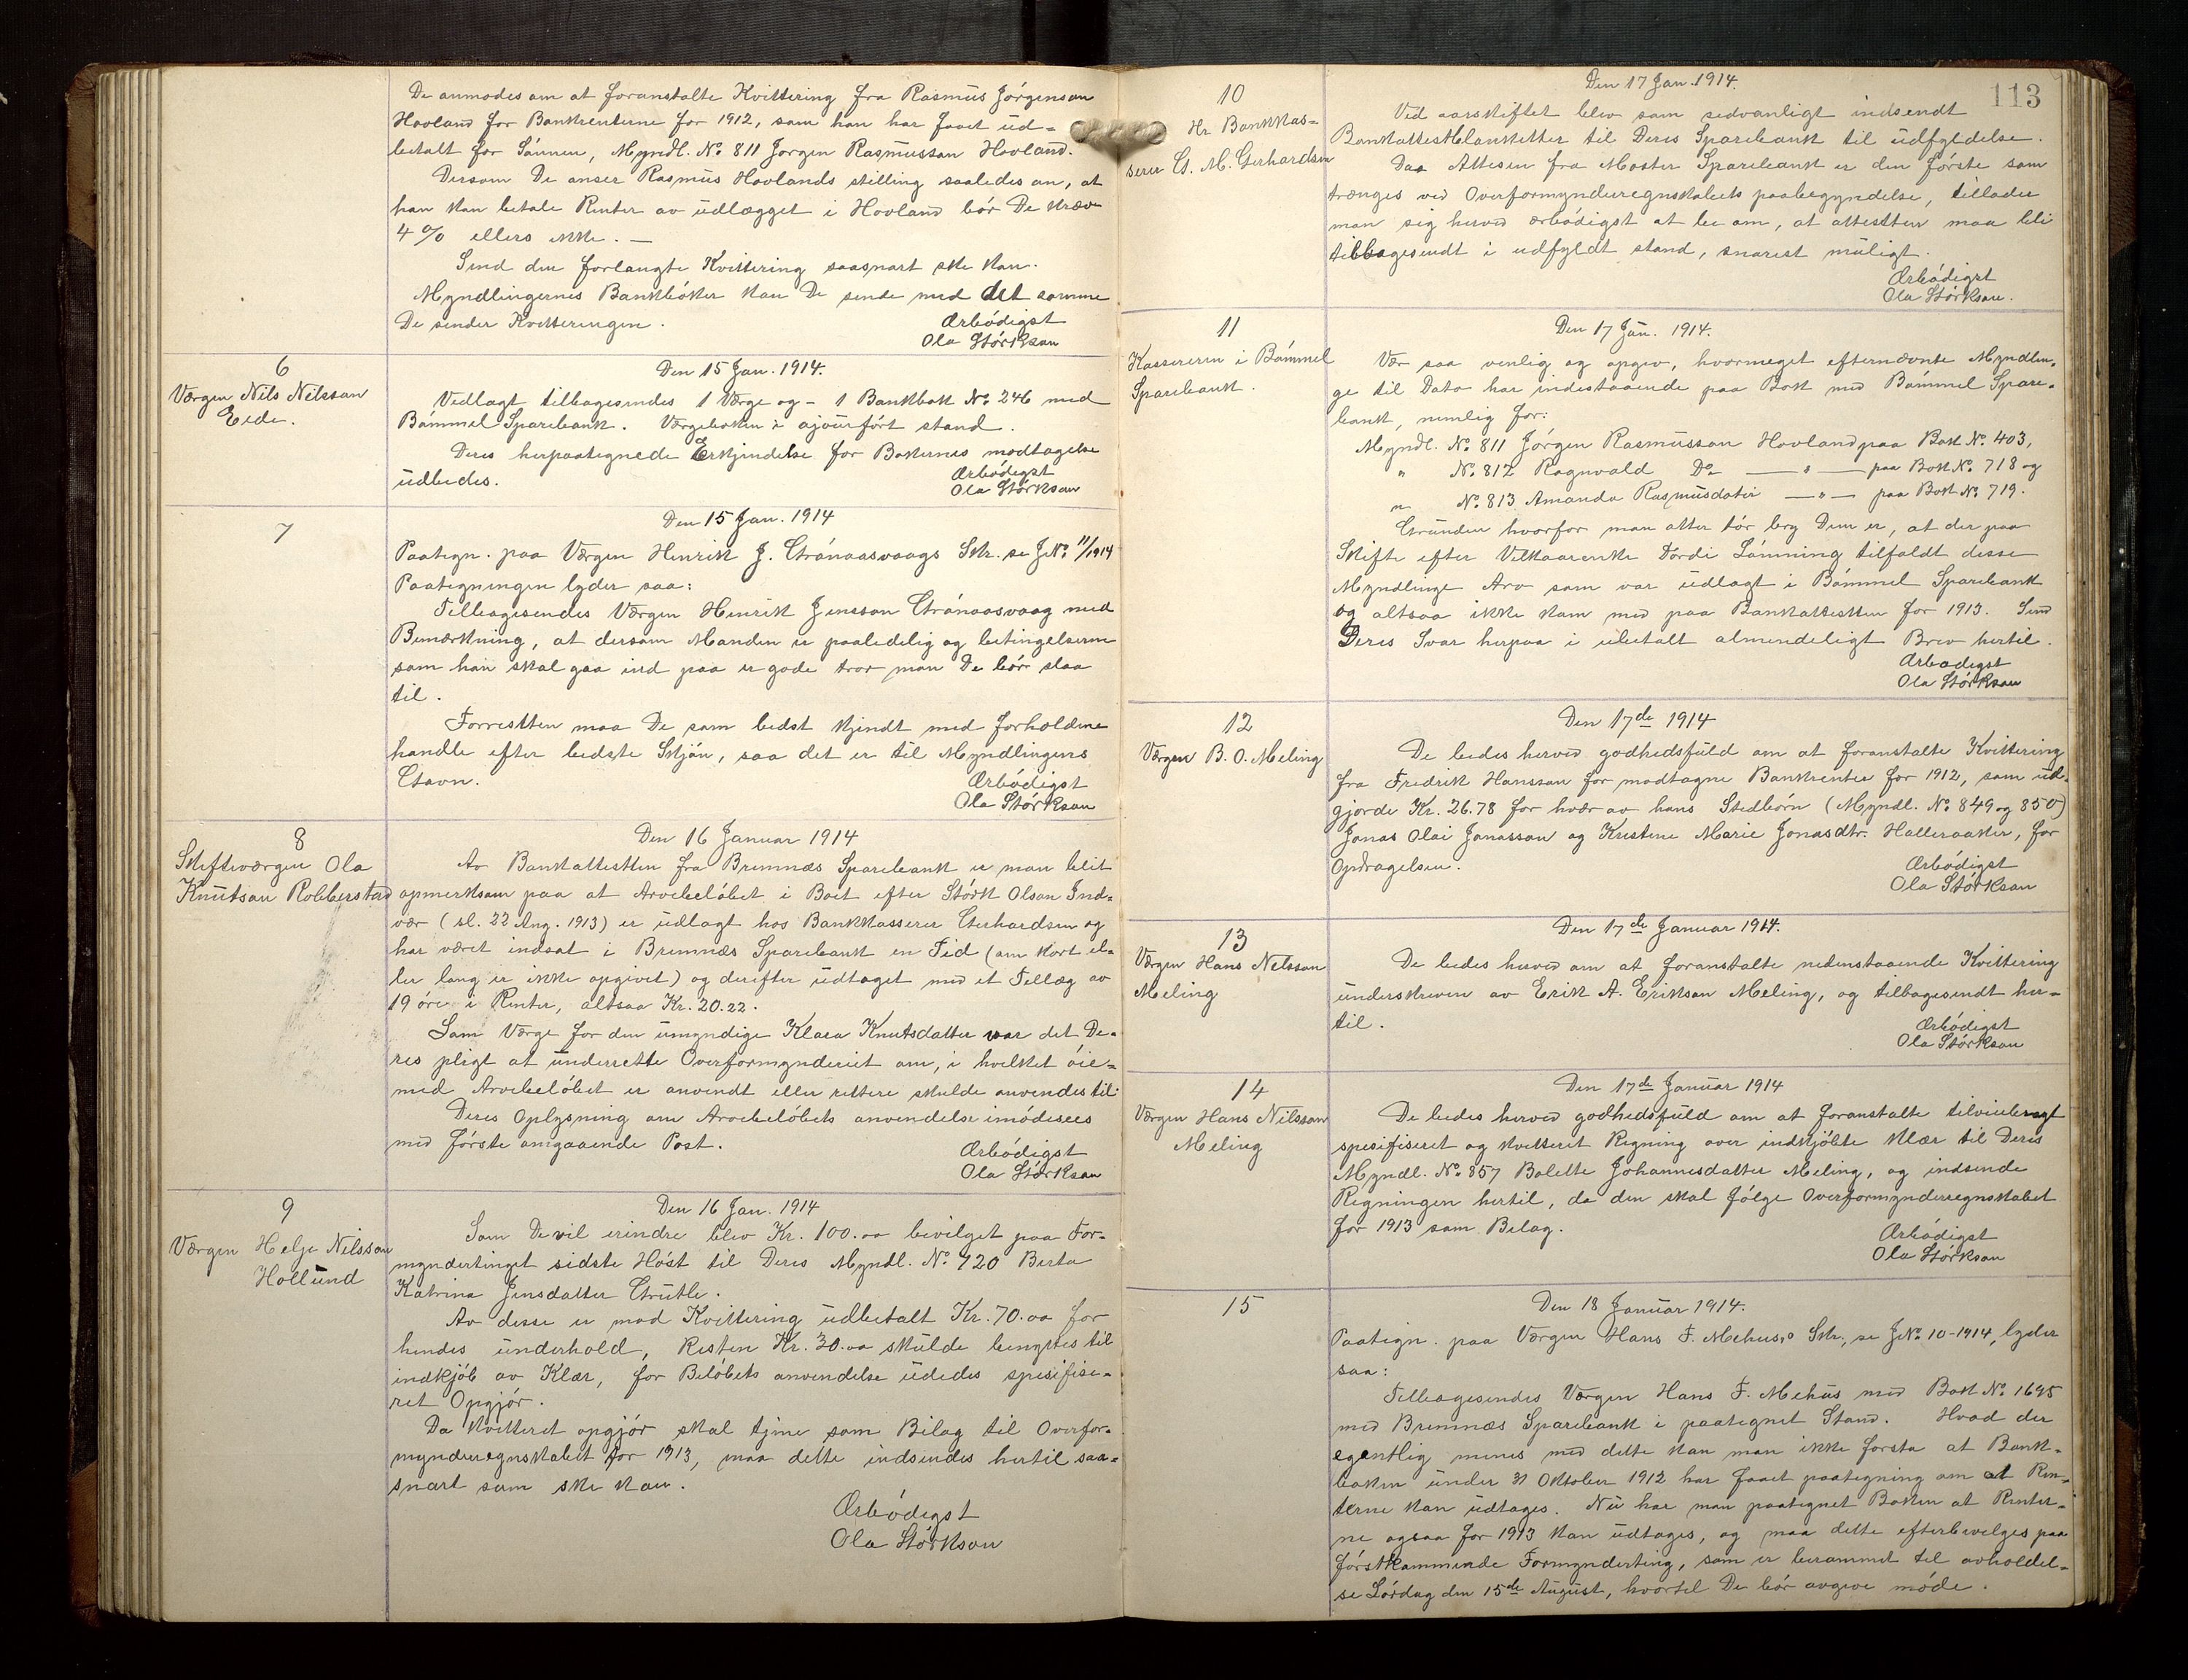 De anmodes om at foranstalte Kvittering fra Rasmus Jörgenson
Hovland for Bankrenterne for 1912, som han har faaet ud-
betalt for Sönnen, Myndl. No 811 Jörgen Rasmussøn Hovland.
Dersom De anser Rasmus Hovlands stilling saaledes an, at
han kan betale Renter av udlægget i Hovland bör De kræve
4 % ellers ikke. —
Send den forlangte Kvittering saasnart ske kan.
Myndlingernes Bankböker kan De sende med det samme
De sender Kvitteringen.
Ærbödigst
Ola Störkson
6
Værgen Nils Nilsson
Eide.
Den 15 Jan. 1914.
Vedlagt tilbagesendes 1 Værge og - 1 Bankbok No 246 med
Bömmel Sparebank. Værgeboken i ajourfört stand.
Deres herpaategnede Erkjendelse for Bökernes modtagelse
udbedes.
Ærbödigst
Ola Störkson
7
Den 15 Jan. 1914
Paategn. paa Værgen Henrik J. Grönaasvaags Skr. se JNo 11/1914
Paategningen lyder saa:
Tilbagesendes Værgen Henrik Jensson Grönaasvaag med
Bemærkning, at dersom Manden er paalidelig og betingelserne
som han skal gaa ind paa er gode tror man De bör slaa
til.
Forresten maa De som bedst kjendt med forholdene
handle efter bedste Skjön, saa det er til Myndlingens
Gavn.
Ærbödigst
Ola Störkson
8
Skifteværgen Ola
Knutson Robberstad
Den 16 Januar 1914
Av Bankattesten fra Bremnæs Sparebank er man blit
opmerksom paa at Arvebelöbet i Boet efter Störk Olson Ind-
vær (sl. 22 Aug. 1913) er udlagt hos Bankkasserer Gerhardsen og
har været indsat i Bremnæs Sparebank en Tid (om kort el-
ler lang er ikke opgivet) og derefter udtaget med et Tillæg av
19 öre i Renter, altsaa Kr. 20.22.
Som Værge for den umyndige Klara Knutsdatter var det De-
res pligt at underrette Overformynderiet om, i hvilket öie-
med Arvebelöbet er anvendt eller rettere skulde anvendes til.
Deres Oplysning om Arvebelöbets anvendelse imödesees
med förste omgaaende Post.
Ærbödigst
Ola Störkson
9
Værgen Helje Nilsson
Hollund
Den 16 Jan. 1914
Som De vil erindre blev Kr. 100.00 bevilget paa For-
myndertinget sidste Höst til Deres Myndl. No 720 Berta
Katrina Jensdatter Grutle.
Av disse er mod Kvittering udbetalt Kr. 70.00 for
hendes underhold, Resten Kr. 30.00 skulde benyttes til
indkjöb av Klær, for Belöbets anvendelse udbedes spesifise-
ret Opgjör.
Da kvitteret opgjör skal tjene som Bilag til Overfor-
mynderregnskabet for 1913, maa dette indsendes hertil saa-
snart som ske kan.
Ærbödigst
Ola Störkson
113
10
Hr. Bankkas-
serer G. M. Gerhardsen
Den 17 Jan. 1914.
Ved aarsskiftet blev som sedvanligt indsendt
Bankattestblanketter til Deres Sparebank til udfyldelse.
Daa Attesten fra Moster Sparebank er den förste som
trænges ved Overformynderregnskabets paabegyndelse, tillader
man sig herved ærbödigst at be om, at attesten maa bli
tilbagesendt i udfyldt stand, snarest muligt.
Ærbödigst
Ola Störkson.
11
Kassereren i Bömmel
Sparebank.
Den 17 Jan. 1914.
Vær saa venlig og opgiv, hvormeget efternævnte Myndlin-
ge til Dato har indestaaende paa Bok med Bömmel Spare-
bank, nemlig for:
Myndl. No 811 Jörgen Rasmusson Hovland paa Bok No. 403,
" No. 812 Ragnvald Do — " — paa Bok No. 718 og
" No. 813 Amanda Rasmusdater — " — paa Bok No. 719.
Grunden hvorfor man atter tör bry Dem er, at der paa
Skifte efter Vilkaarenke Tordi Lönning tilfaldt disse
Myndlinge Arv som var udlagt i Bömmel Sparebank
og altsaa ikke kom med paa Bankattesten for 1913. Send
Deres Svar herpaa i ubetalt almendeligt Brev hertil.
Ærbödigst
Ola Störkson
12
Værgen B. O. Meling
Den 17de 1914
De bedes herved godhedsfuld om at foranstalte Kvittering
fra Fredrik Hansson for modtagne Bankrenter for 1912, som ud-
gjorde Kr. 26.78 for hvær av hans Stedbörn (Myndl. No 849 og 850)
Jonas Olai Jonasson og Kristine Marie Jonasdtr. Halleraaker, for
Opdragelsen.
Ærbödigst
Ola Störkson
13
Værgen Hans Nilsson
Meling
Den 17de Januar 1914.
De bedes herved om at foranstalte nedenstaaende Kvittering
underskreven av Erik A. Erikson Meling, og tilbagesendt her-
til.
Ærbödigst
Ola Störkson
14
Værgen Hans Nilsson
Meling
Den 17de Januar 1914
De bedes herved godhedsfuld om at foranstalte tilveiebragt
spesifiseret og kvitterit Regning over indkjöbte Klær til Deres
Myndl. No. 857 Bolette Johannesdatter Meling, og indsende
Regningen hertil, da den skal fölge Overformynderregnskabet
for 1913 som Bilag.
Ærbödigst
Ola Störkson
15
Den 18 Januar 1914.
Paategn. paa Værgen Hans F. Mehus's Skr., se JNo 10-1914, lyder
saa:
Tilbagesendes Værgen Hans F. Mehus med Bok No 1695
med Bremnæs Sparebank i paategnet Stand. Hvad der
egentlig menes med dette kan man ikke forsta at Bank-
boken under 31 Oktober 1912 har faaet paategning om at Ren-
terne kan udtages. Nu har man paategnet Boken at Renter-
ne ogsaa for 1913 kan udtages, og maa dette efterbevilges paa
förstkommende Formynderting, som er berammet til avholdel-
se Lördag den 15de August, hvortil De bör avgive möde.